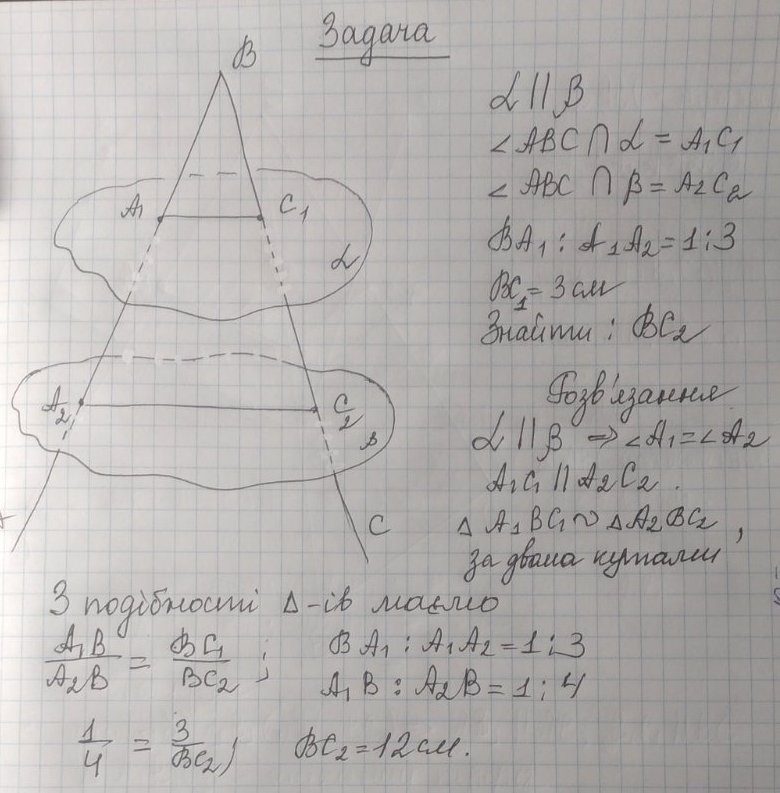 Задача
B
A1
C1
α
A2
C2
β
C
α || β
∠ABC ∩ α = A1C1
∠ABC ∩ β = A2C2
BA1 : A1A2 = 1:3
BC1 = 3 см
Знайти : BC2
Розв'язання
α || β ⇒ ∠A1 = ∠A2
A1C1 || A2C2 .
Δ A1BC1 ~ Δ A2BC2 ,
за двома кутами
З подібності Δ-ів маємо
A1B/A2B = BC1/BC2 ; BA1 : A1A2 = 1:3
A1B : A2B = 1:4
1/4 = 3/BC2 ; BC2 = 12 см.